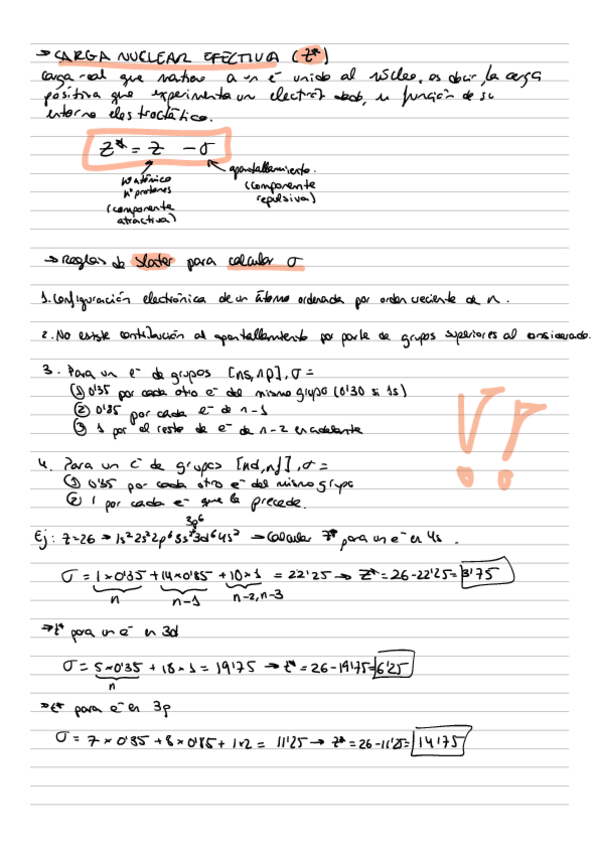 → CARGA NUCLEAR EFECTIVA (Z*)
carga real que mantiene a un e⁻ unido al núcleo, es decir, la carga
positiva que experimenta un electrón dado, en función de su
entorno electrostático.
Z* = Z - σ
nº atómico
nº protones
(componente
atractiva)
apantallamiento.
(componente
repulsiva)
→ Reglas de Slater para calcular σ
1. Configuración electrónica de un átomo ordenada por orden creciente de n.
2. No existe contribución al apantallamiento por parte de grupos superiores al considerado.
3. Para un e⁻ de grupos [ns, np], σ =
① 0'35 por cada otro e⁻ del mismo grupo (0'30 si 1s)
② 0'85 por cada e⁻ de n-1
③ 1 por el resto de e⁻ de n-2 en adelante
4. Para un e⁻ de grupos [nd, nf], σ =
① 0'35 por cada otro e⁻ del mismo grupo
② 1 por cada e⁻ que la precede.
3p⁶
Ej: Z=26 → 1s² 2s² 2p⁶ 3s² 3d⁶ 4s² → Calcular Z* para un e⁻ en 4s.
σ = 1×0'35 + 14×0'85 + 10×1 = 22'25 → Z* = 26-22'25 = 3'75
n n-1 n-2, n-3
→ Z* para un e⁻ en 3d
σ = 5×0'35 + 18×1 = 19'75 → Z* = 26-19'75 = 6'25
n
→ Z* para e⁻ en 3p
σ = 7×0'35 + 8×0'85 + 1×2 = 11'25 → Z* = 26-11'25 = 14'75